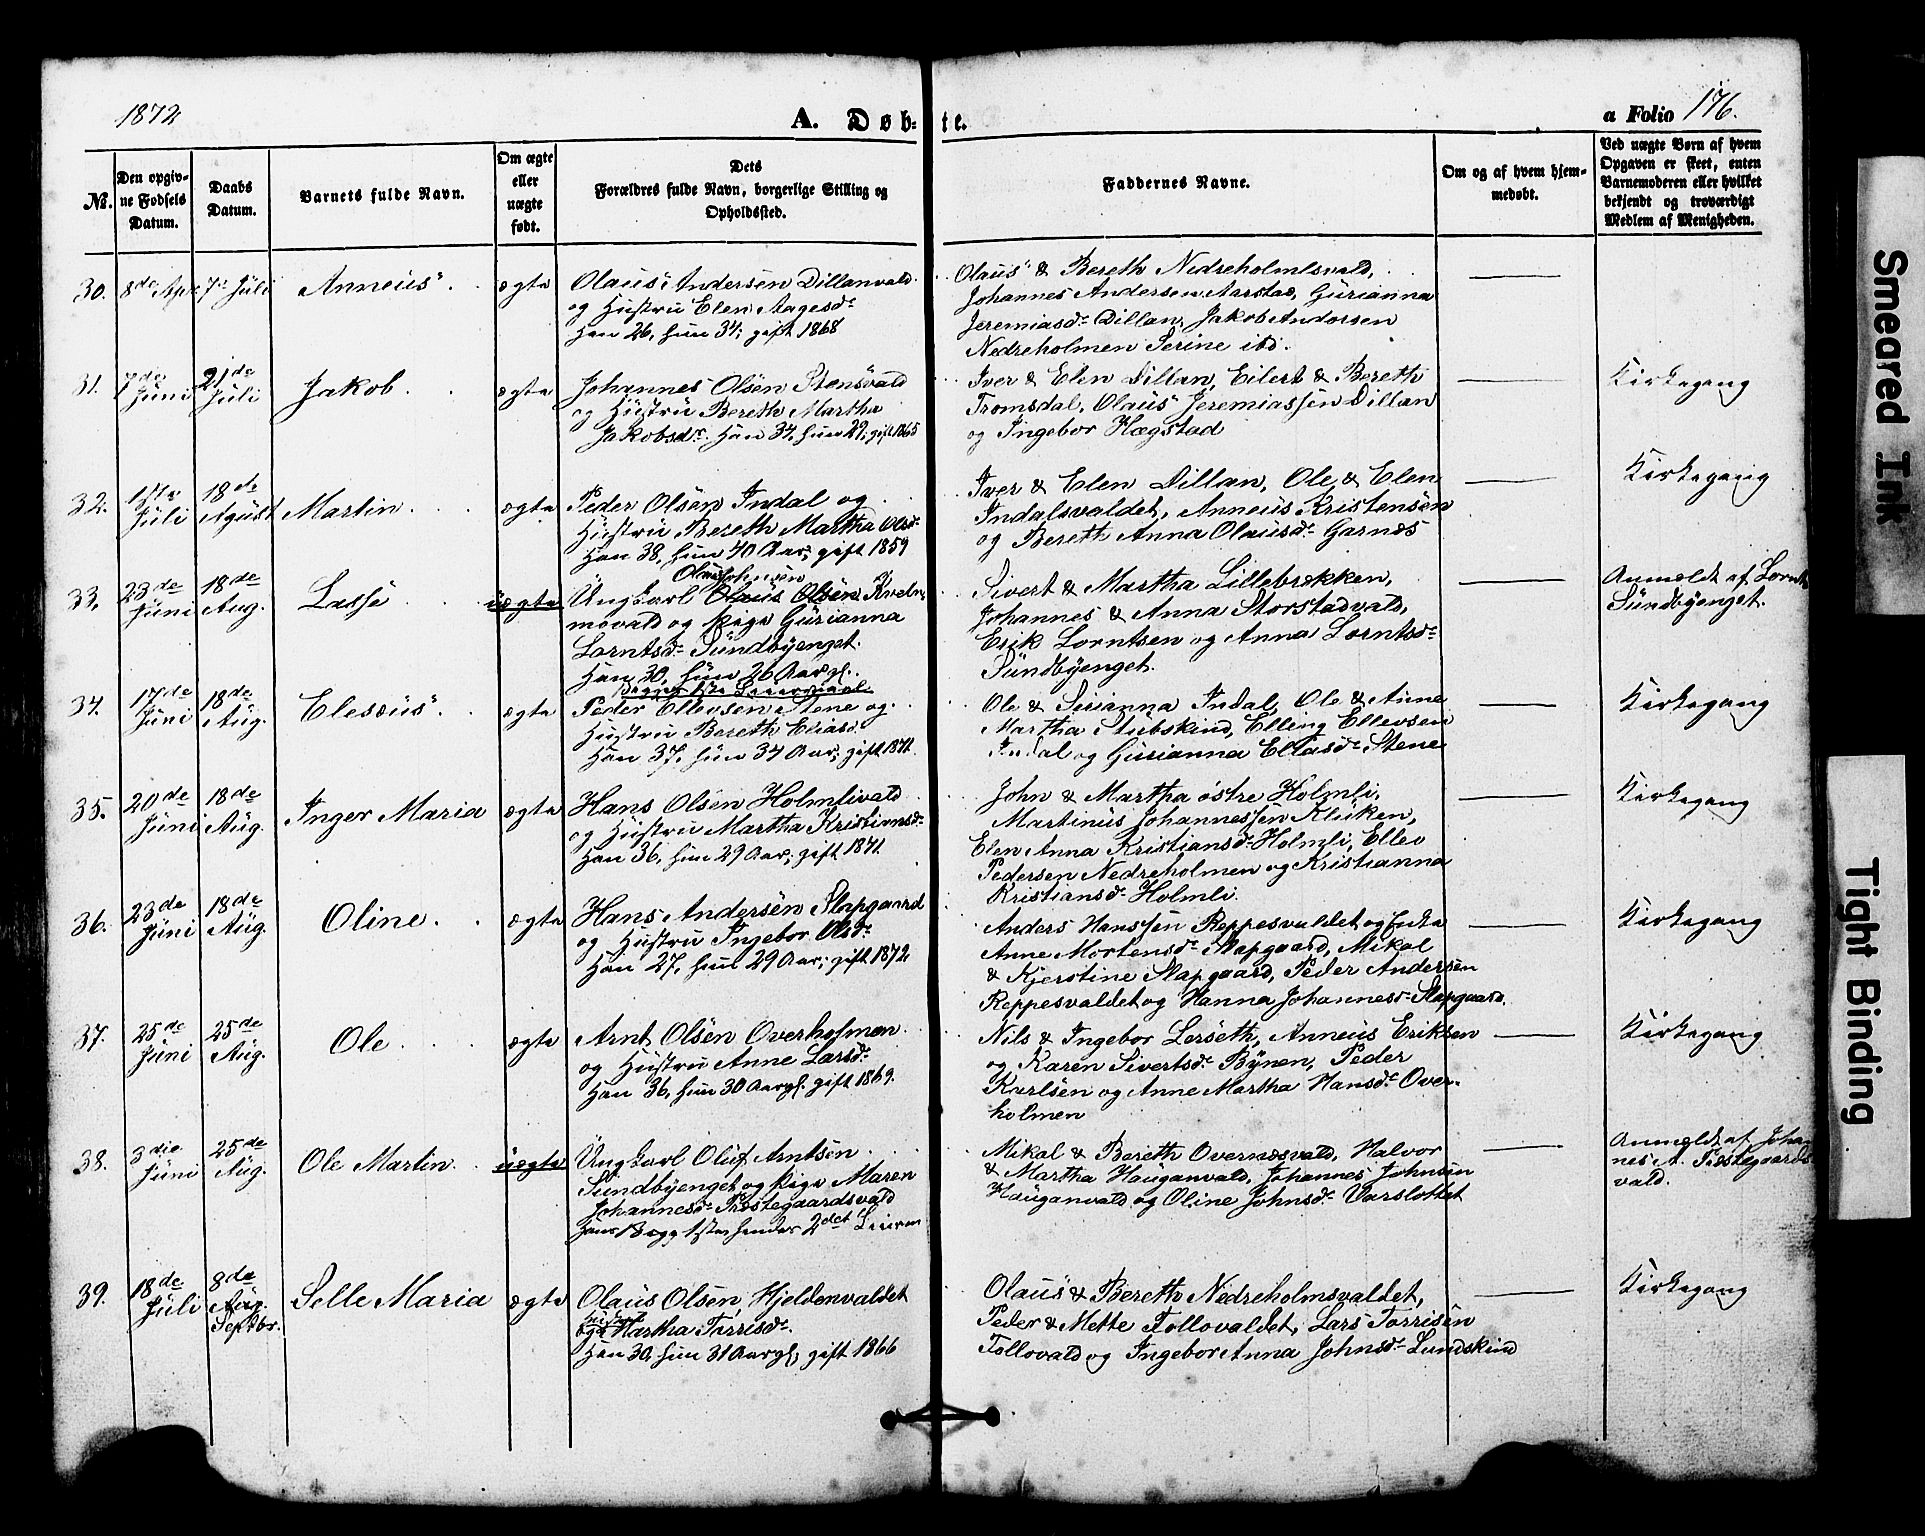 1872
A. Døb-te.
a Folio 176.
No.
Den opgivne Fødsels Datum.
Daabs Datum.
Barnets fulde Navn.
Om ægte eller uægte født.
Dets Forældres fulde Navn, borgerlige Stilling og Opholdssted.
Faddernes Navne.
Om og af hvem hjemmedøbt.
Ved uægte Børn af hvem Opgaven er skeet, enten Barnemoderen eller hvilket bekjendt og troværdigt Medlem af Menigheden.
30. 8de Apr. 7de Juli Anneus ægte
Olaus Andersen Dillanvald
og Hustru Elen Aagesdr
Han 26, hun 34; gift 1868
Olaus & Bereth Nedreholmsvald,
Johannes Andersen Aarstad, Gurianna
Jeremiasdr Dillan, Jakob Andersen
Nedreholmen Serine ibd.
31. 7de Juni 21de Juli Jakob ægte
Johannes Olsen Stensvald
og Hustru Bereth Martha
Jakobsdr. Han 34, hun 29; gift 1865
Iver & Elen Dillan, Eilert & Bereth
Tromsdal, Olaus Jeremiassen Dillan
og Ingebor Hægstad
Kirkegang
32. 1ste Juli 18de Agust Martin ægte
Peder Olsen Indal og
Hustru Bereth Martha Olsdr
Han 38, hun 40 Aar; gift 1859
Iver & Elen Dillan, Ole & Elen
Indalsvaldet, Anneus Kristensen
og Bereth Anna Olausdr Garnes
Kirkegang
33. 23de Juni 18de Aug. Lasse uægte
Olaus Johnsen
Ungkarl Olaus Olsen Kvelmovald
og Pige Gurianna
Lorntsdr Sundbyenget.
Han 30, hun 26 Aargl.
Begges 1ste Leiermaal
Sivert & Martha Lillebrækken,
Johannes & Anna Storstadvald,
Erik Lorntsen og Anna Lorntsdr
Sundbyenget.
Anmeldt af Lornts
Sundbyenget.
34. 17de Juni 18de Aug. Elesæus ægte
Peder Ellevsen Stene og
Hustru Bereth Eliasdr
Han 37, hun 34 Aar; gift 1871
Ole & Gurianna Indal, Ole & Anne
Martha Stubskind, Elling Ellevsen
Indal og Gurianna Eliasdr Stene
Kirkegang
35. 20de Juni 18de Aug. Inger Maria ægte
Hans Olsen Holmlivald
og Hustru Martha Kristiansdr
Han 36, hun 29 Aar; gift 1871
John & Martha østre Holmli,
Martinus Johannessen Kluken,
Elen Anna Kristiansdr Holmli, Ellev
Pedersen Nedreholmen og Kristianna
Kristiansdr Holmli.
Kirkegang
36. 23de Juni 18de Aug. Oline ægte
Hans Andersen Slapgaard
og Hustru Ingebor Olsdr
Han 27, hun 29 Aar; gift 1872
Anders Hanssen Reppesvaldet og Enke
Anne Mortensdr Slapgaard, Mikal
& Kjerstine Slapgaard, Peder Andersen
Reppesvaldet og Hanna Johannesdr Slapgaard.
Kirkegang
37. 25de Juni 25de Aug. Ole ægte
Arnt Olsen Overholmen
og Hustru Anne Larsdr
Han 36, hun 30 Aargl. gift 1869.
Nils & Ingebor Lerseth, Anneus Eriksen
og Karen Sivertsdr Bynen, Peder
Karlsen og Anne Martha Hansdr Over-
holmen
Kirkegang
38. 3die Juni 25de Aug. Ole Martin uægte
Ungkarl Oluf Arntsen
Sundbyenget og Pige Maren
Johannesdr Præstegaardsvald
hans Begg 1ste, hendes 2det Leierm
Mikal & Bereth Overnæsvald, Halvor
& Martha Hauganvald, Johannes Johnsen
Hauganvald og Oline Johnsdr Varslottet
Anmeldt af Johan-
nes A. Præstegaards-
vald.
39. 18de Juli 8de Aug. Septbr. Selle Maria ægte
Olaus Olsen Hjeldenvaldet
Hustru
og Martha Torrisdr.
Han 30, hun 31 Aargl; gift 1866
Olaus & Bereth Nedreholmsvaldet,
Peder & Mette Tollovaldet, Lars Torrisen
Tollovald og Ingebor Anna Johnsdr Lundskind
Kirkegang
Smeared Ink
Tight Binding